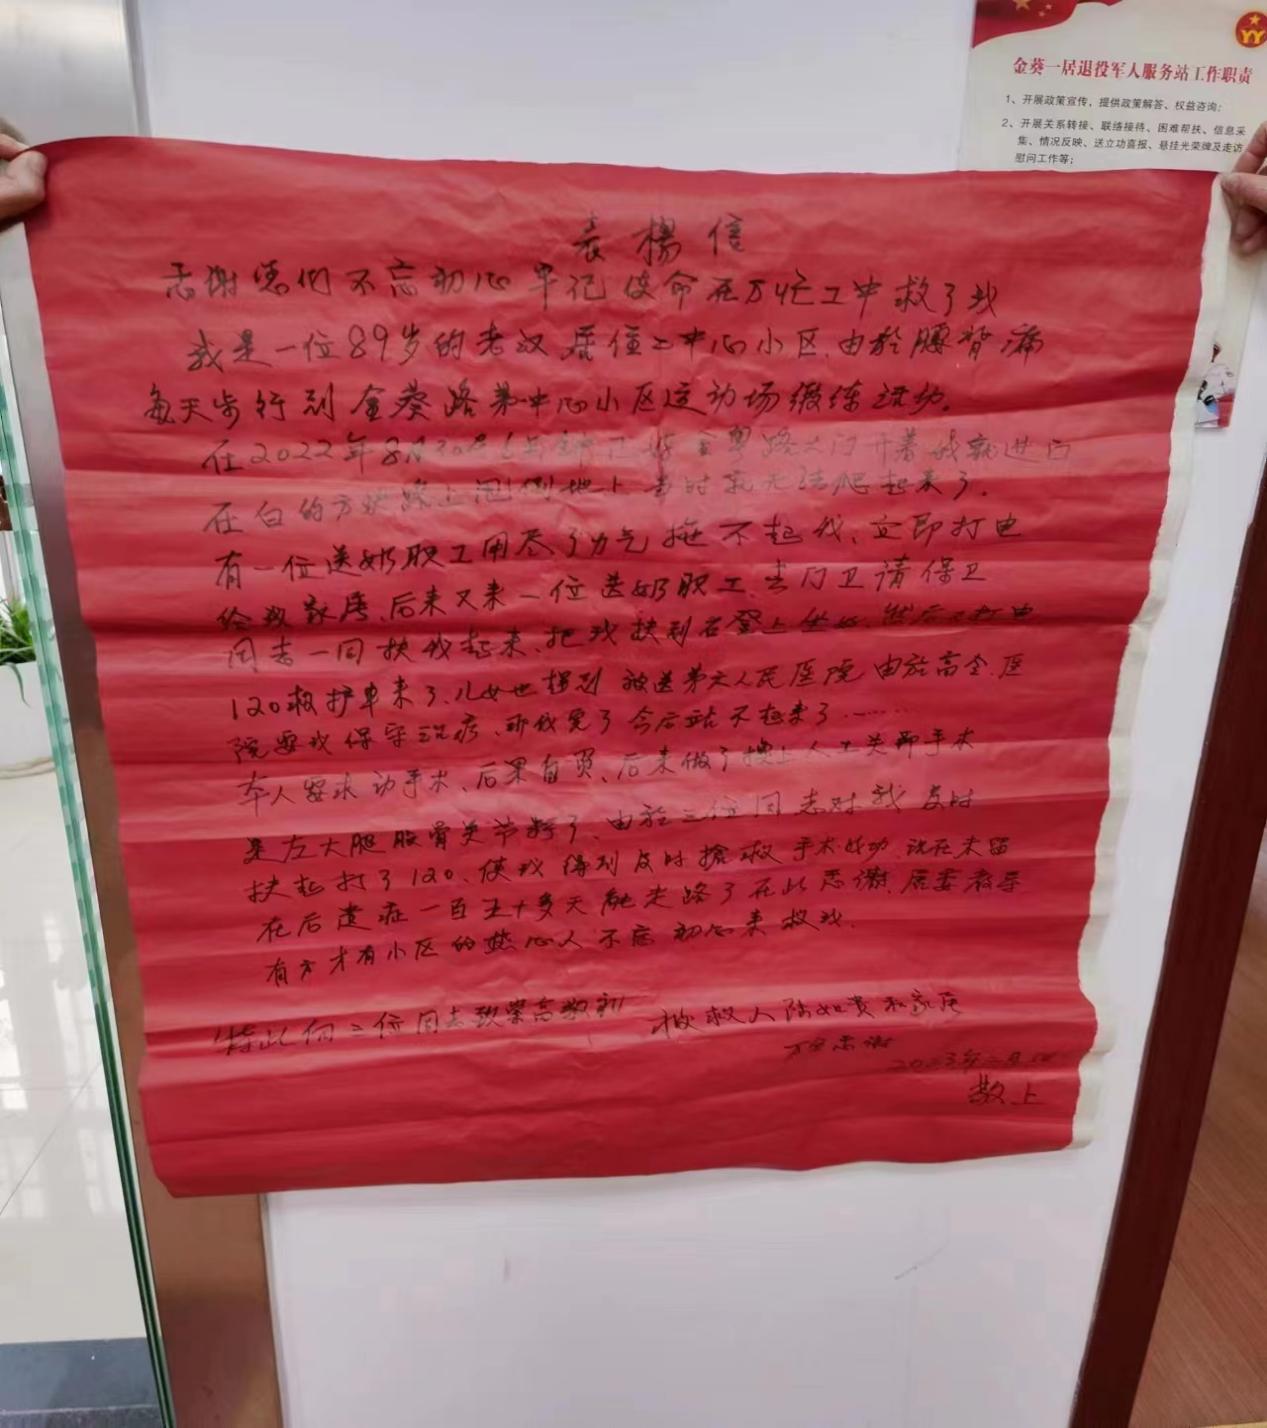 金葵一居退役军人服务站工作职责
1、开展政策宣传，提供政策解答、权益咨询；
2、开展关系转接、联络接待、困难帮扶、信息采
集、情况反映、送立功喜报、悬挂光荣牌及走访
慰问工作等；
表揚信
感谢您们不忘初心牢记使命在万忙工中救了我
我是一位89岁的老汉居住二中心小区、由於腰背痛
每天步行到金葵路第中心小区运动场锻练活动。
在2022年8月30号6点钟正好金粤路大门开着我就进门
在白的方块路上 倒地上、当时就无法爬起来了。
有一位送奶职工用尽了力气拖不起我、立即打电
给我家属、后来又来一位送奶职工、去门卫请保卫
同志一同扶我起来、把我扶到石登上坐好、然后又打电
120救护车来了、儿女也赶到 送第六人民医院 由於高令、医
院要我保守治疗、那我完了今后站不起来了……
本人要求动手术、后果自负、后来做了换上人工关节手术
是左大腿股骨关节断了、由於三位同志对我及时
扶起打了120、使我得到及时搶救手术成功、现在未留
在后遗症一百五十多天能走路了在此感谢、居委教导
有方才有小区的热心人不忘初心来救我、
特此向三位同志致崇高敬礼 被救人陆 贵和家属
万分感谢
2023年二月
敬上